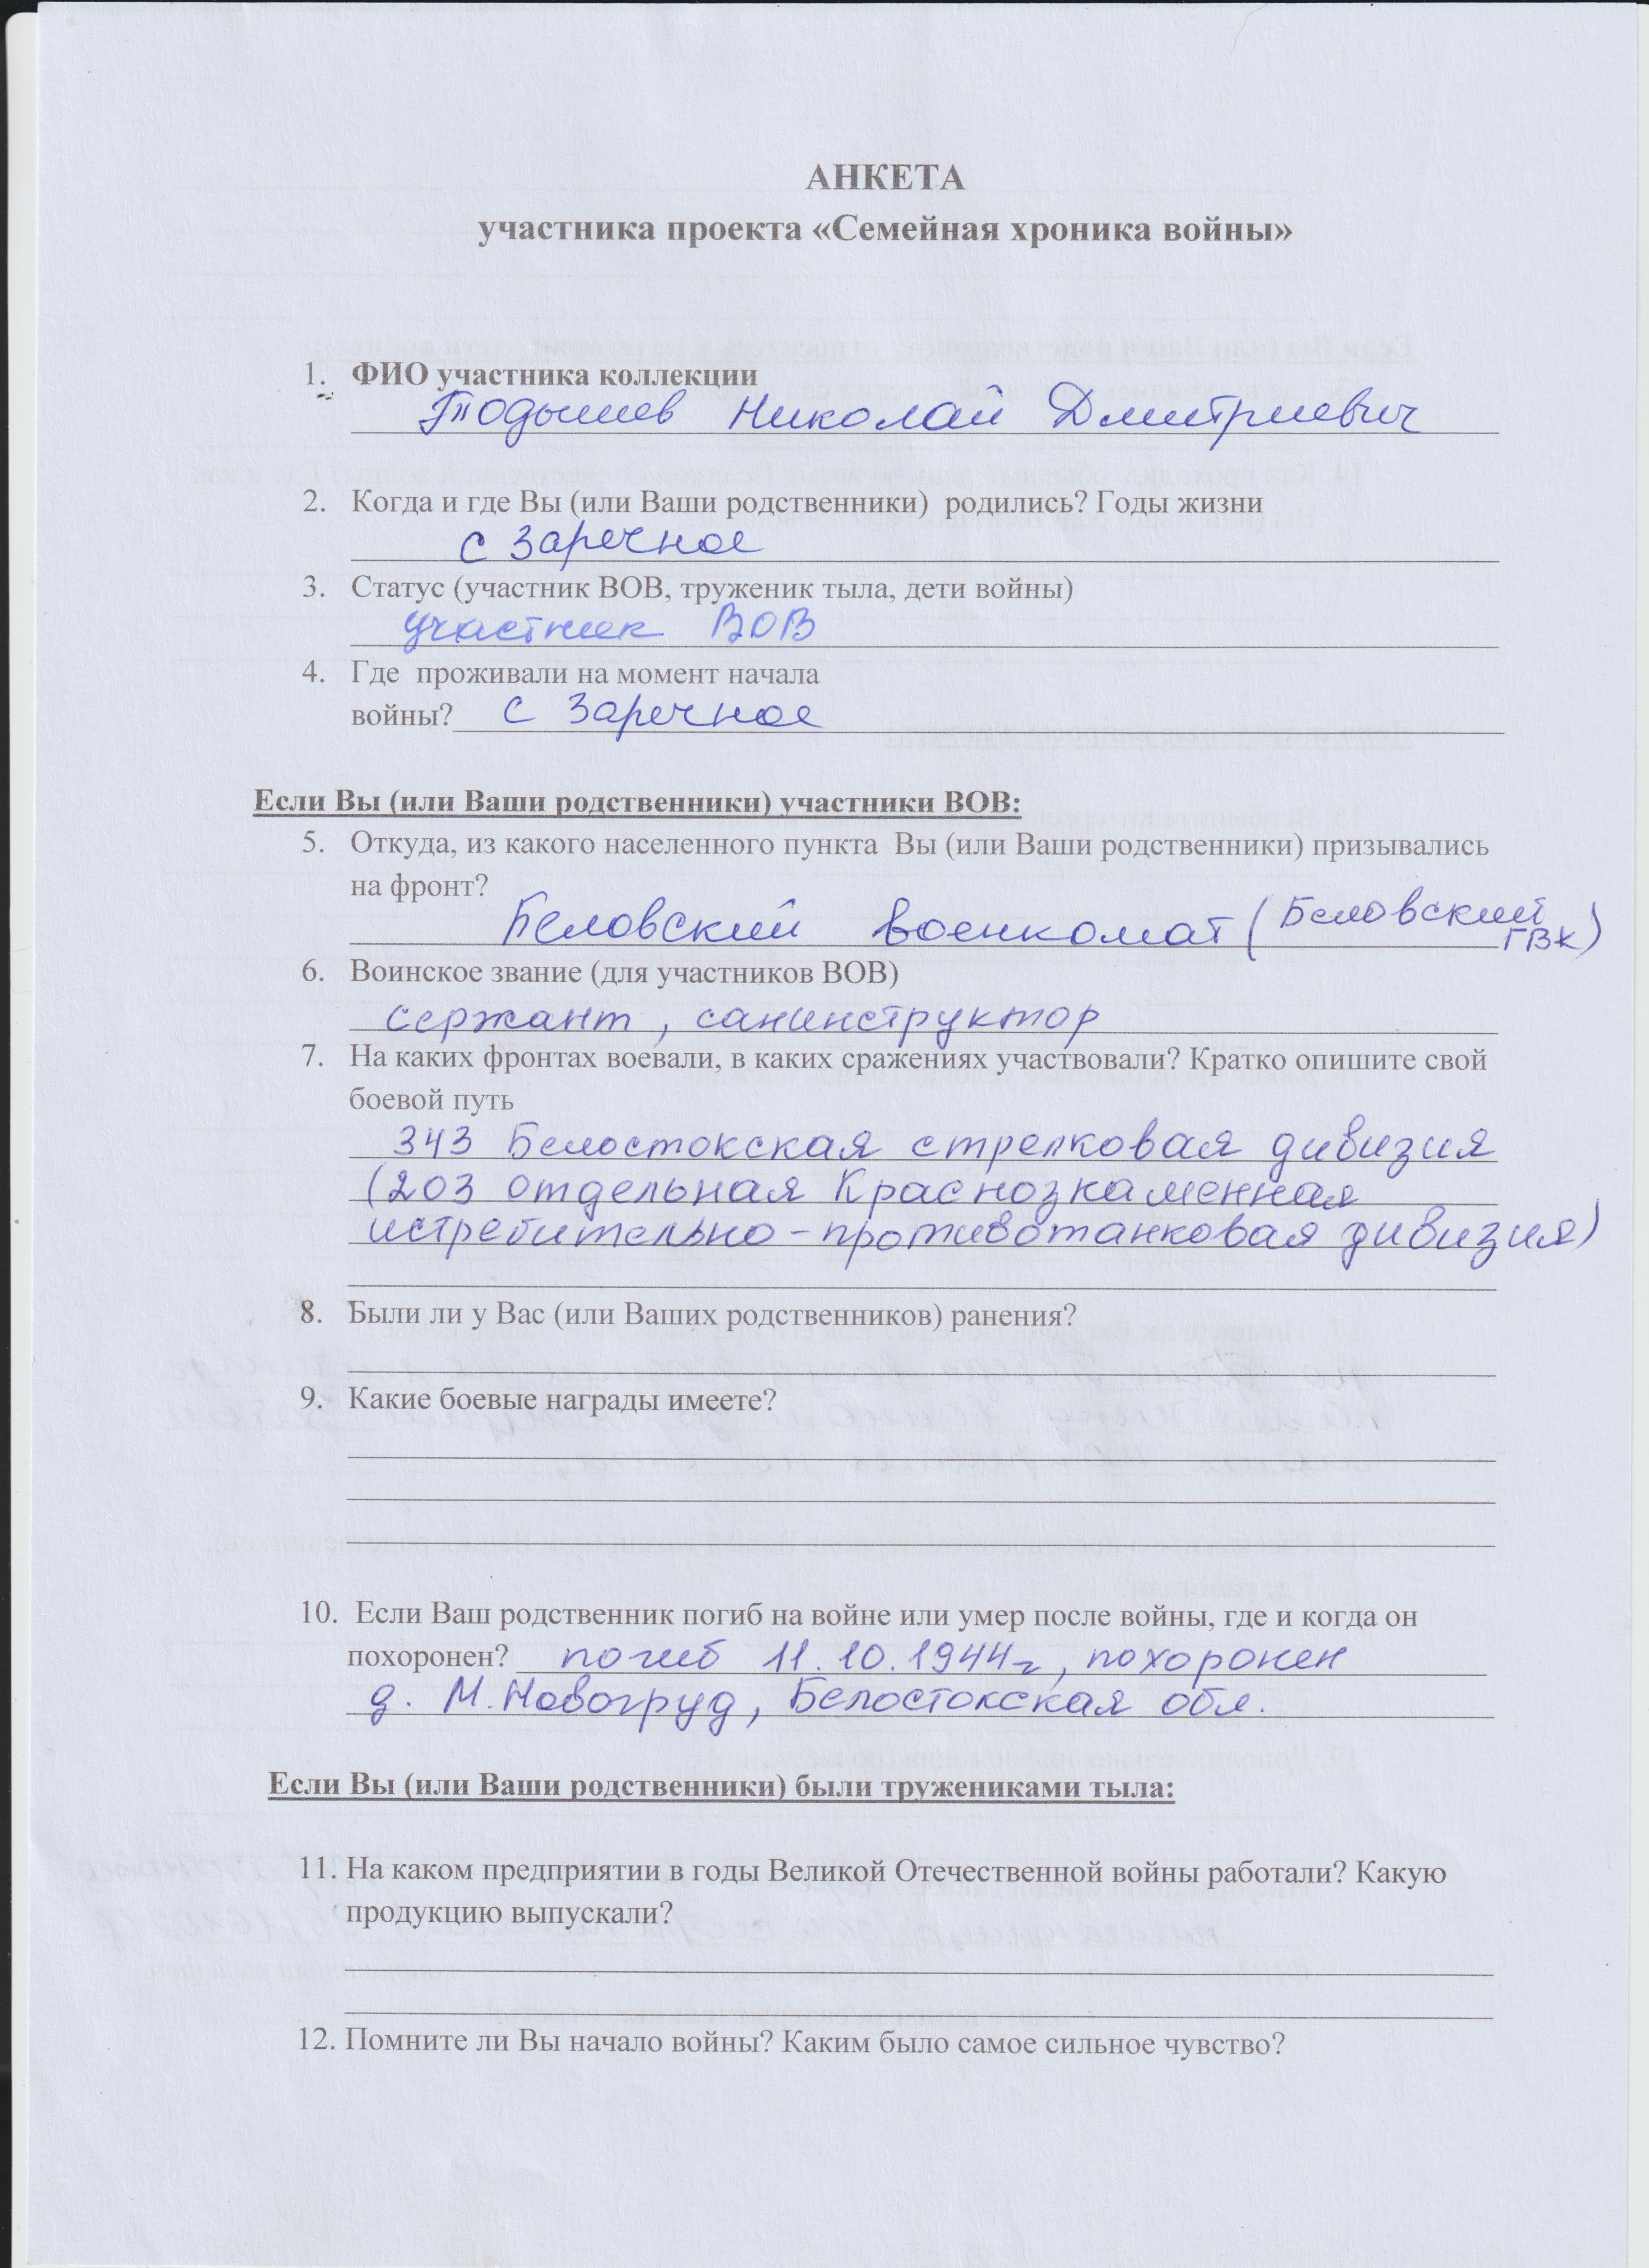 АНКЕТА
участника проекта «Семейная хроника войны»
1. ФИО участника коллекции
Тодышев Николай Дмитриевич
2. Когда и где Вы (или Ваши родственники) родились? Годы жизни
с Заречное
3. Статус (участник ВОВ, труженик тыла, дети войны)
участник ВОВ
4. Где проживали на момент начала
войны? с Заречное
Если Вы (или Ваши родственники) участники ВОВ:
5. Откуда, из какого населенного пункта Вы (или Ваши родственники) призывались
на фронт?
Беловский военкомат (Беловский
ГВК)
6. Воинское звание (для участников ВОВ)
сержант, санинструктор
7. На каких фронтах воевали, в каких сражениях участвовали? Кратко опишите свой
боевой путь
343 Белостокская стрелковая дивизия
(203 отдельная Краснознаменная
истребительно-противотанковая дивизия)
8. Были ли у Вас (или Ваших родственников) ранения?
9. Какие боевые награды имеете?
10. Если Ваш родственник погиб на войне или умер после войны, где и когда он
похоронен? погиб 11.10.1944г, похоронен
д. М.Новогруд, Белостокская обл.
Если Вы (или Ваши родственники) были тружениками тыла:
11. На каком предприятии в годы Великой Отечественной войны работали? Какую
продукцию выпускали?
12. Помните ли Вы начало войны? Каким было самое сильное чувство?